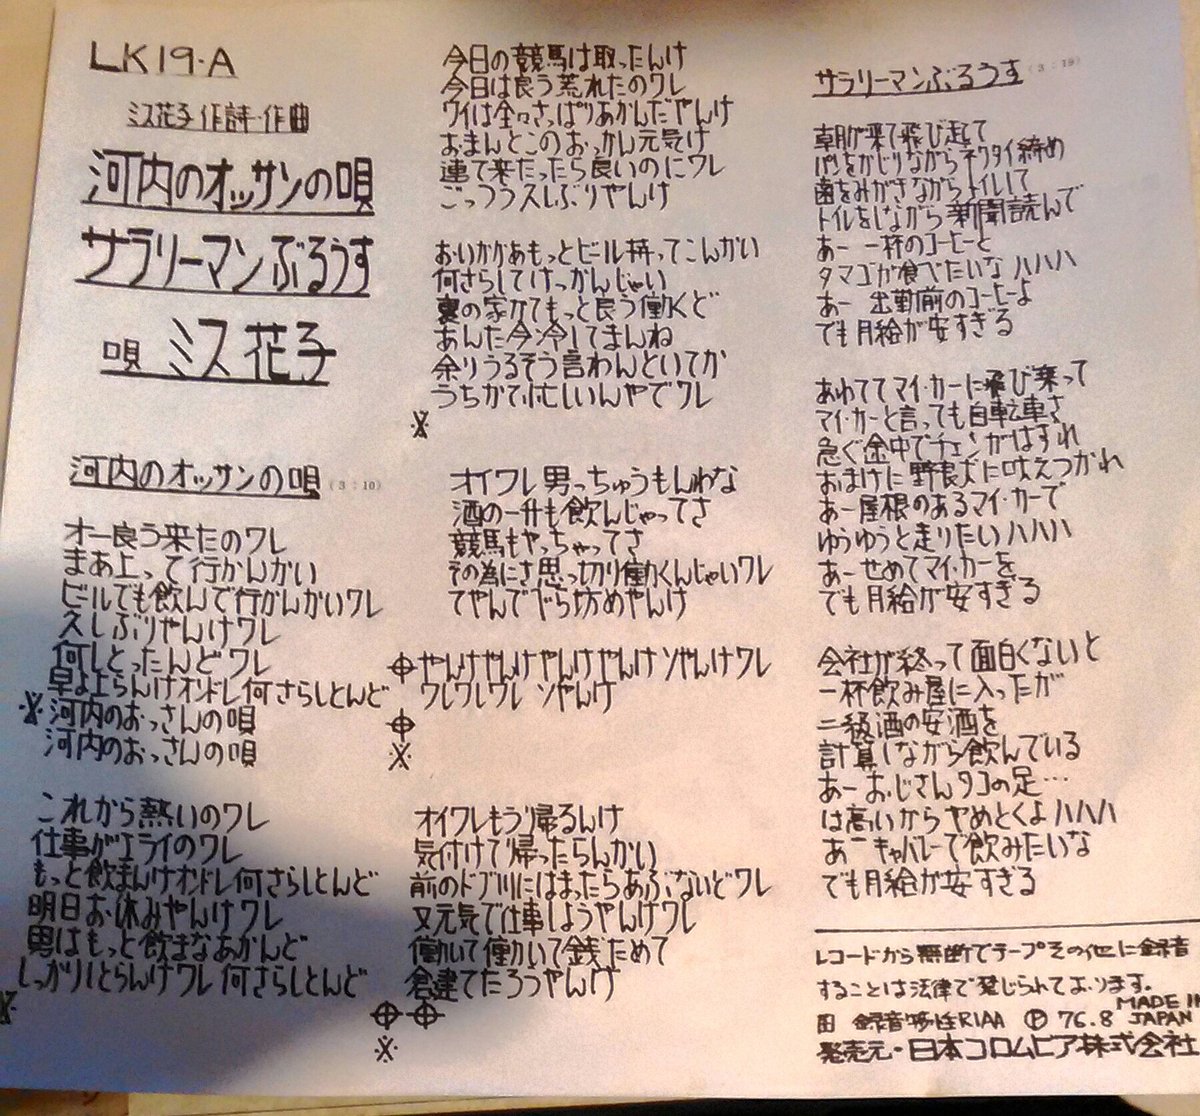 LK19・A
ミス花子作詩・作曲
河内のオッサンの唄
サラリーマンぶるうす
唄 ミス花子
河内のオッサンの唄(3:10)
オー良う来たのワレ
まあ上って行かんかい
ビールでも飲んで行かんかいワレ
久しぶりやんけワレ
何しとったんどワレ
早よ上らんけオンドレ何さらしとんど
※河内のおっさんの唄
河内のおっさんの唄
これから熱いのワレ
仕事がエライのワレ
もっと飲まんけオンドレ何さらしとんど
明日お休みやんけワレ
男はもっと飲まなあかんど
しっかりしとらんけワレ何さらしとんど
※
今日の競馬は取ったんけ
今日は良う荒れたのワレ
ワイは全々さっぱりあかんだやんけ
おまんとこのおっかん元気け
連て来たったら良いのにワレ
ごっつう久しぶりやんけ
おいかかあもっとビール持ってこんかい
何さらしてけっかんじゃい
裏の家かてもっと良う働くど
あんた今冷してまんね
余りうるそう言わんといてか
うちかて忙しいんやでワレ
※
オイワレ男っちゅうもんわな
酒の一升も飲んじゃってさ
競馬もやっちゃってさ
その為にさ思っ切り働くんじゃいワレ
てやんでべらぼめやんけ
⊕やんけやんけやんけやんけソやんけワレ
ワレワレワレ ソやんけ
⊕
※
オイワレもう帰るんけ
気付けて帰ったらんかい
前のドブ川にはまったらあぶないどワレ
又元気で仕事しようやんけワレ
働いて働いて銭ためて
倉建てたろうやんけ
⊕-⊕
※
サラリーマンぶるうす(3:19)
朝が来て飛び起て
パンをかじりながらネクタイ締め
歯をみがきながらトイレいて
トイレをしながら新聞読んで
あー 一杯のコーヒーと
タマゴが食べたいなハハハ
あー 出勤前のコーヒーよ
でも月給が安すぎる
あわててマイ・カーに飛び乗って
マイ・カーと言っても自転車さ
急ぐ途中でチェンがはずれ
おまけに野良犬に吠えつかれ
あー屋根のあるマイ・カーで
ゆうゆうと走りたいハハハ
あーせめてマイ・カーを
でも月給が安すぎる
会社が終って面白くないと
一杯飲み屋に入ったが
二級酒の安酒を
計算しながら飲んでいる
あーおじさんタコの足…
は高いからやめとくよハハハ
あーキャバレーで飲みたいな
でも月給が安すぎる
レコードから無断でテープその他に録音
することは法律で禁じられております。
MADE IN
録音特性RIAA Ⓟ 76.8 JAPAN
発売元・日本コロムビア株式会社